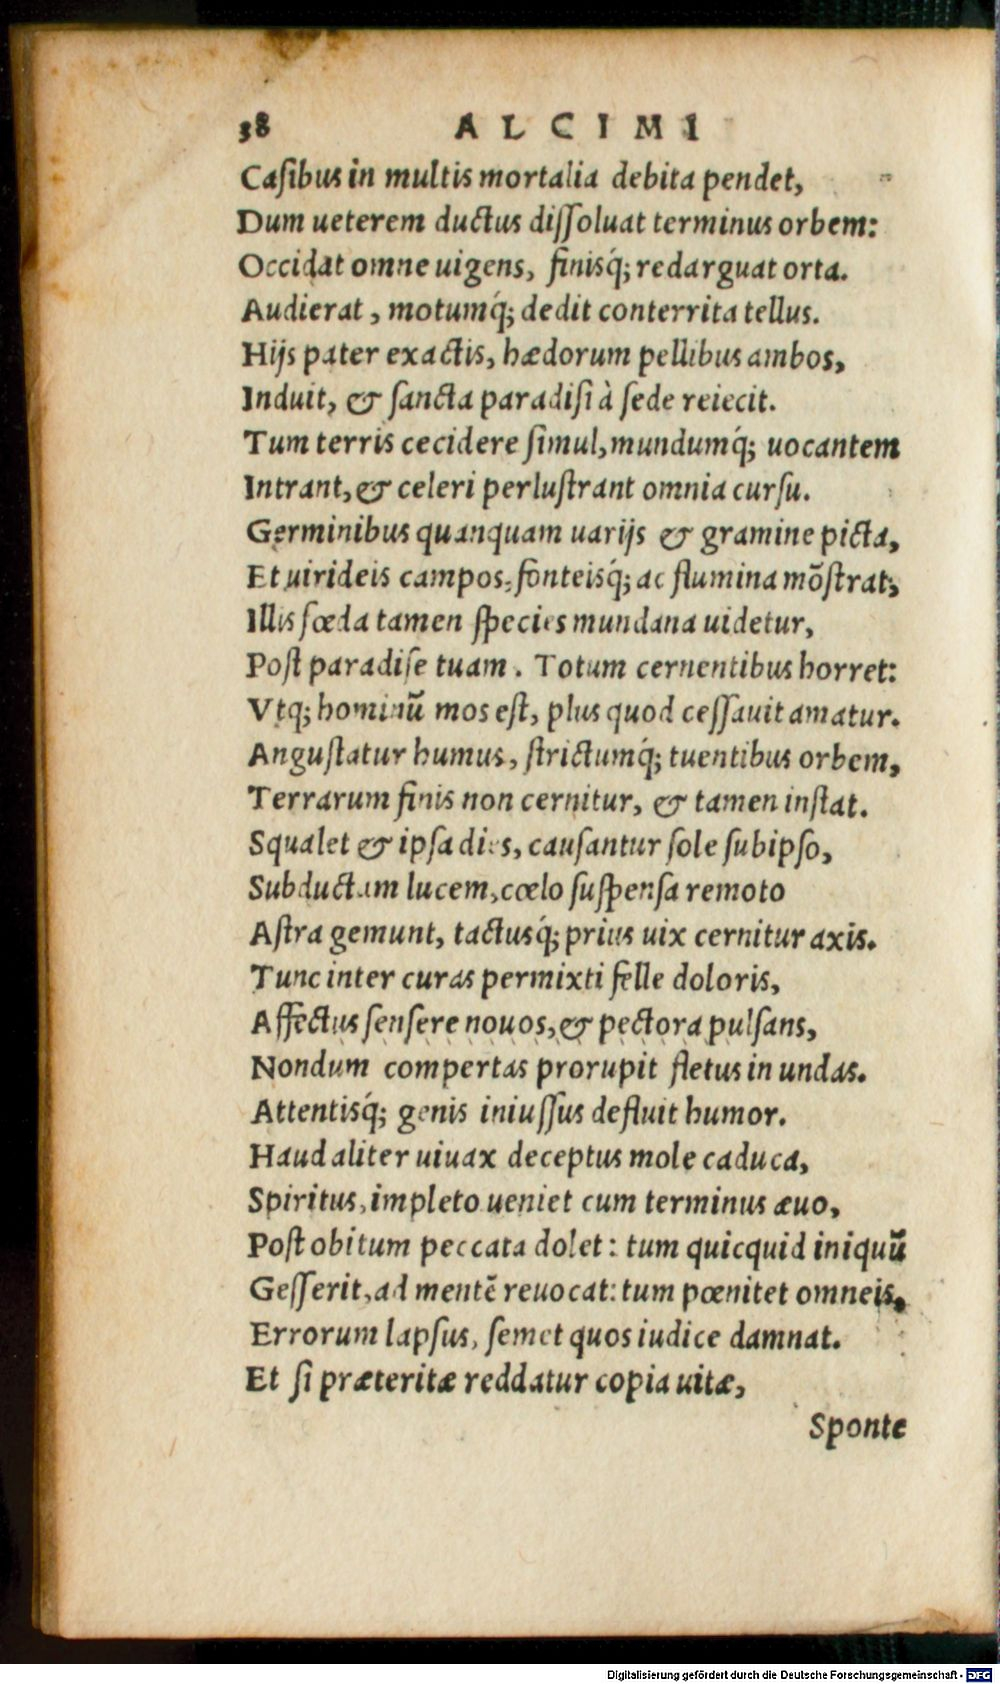 38 ALCIMI
Casibus in multis mortalia debita pendet,
Dum ueterem ductus dissoluat terminus orbem:
Occidat omne uigens, finisq́; redarguat orta.
Audierat, motumq́; dedit conterrita tellus.
Hijs pater exactis, hædorum pellibus ambos,
Induit, & sancta paradisi à sede reiecit.
Tum terris cecidere simul, mundumq́; uocantem
Intrant, & celeri perlustrant omnia cursu.
Germinibus quanquam uarijs & gramine picta,
Et uirideis campos, fonteisq́; ac flumina mõstrat,
Illis fœda tamen species mundana uidetur,
Post paradise tuam. Totum cernentibus horret:
Vtq; hominũ mos est, plus quod cessauit amatur.
Angustatur humus, strictumq́; tuentibus orbem,
Terrarum finis non cernitur, & tamen instat.
Squalet & ipsa dies, causantur sole sub ipso,
Subductam lucem, cœlo suspensa remoto
Astra gemunt, tactusq́; prius uix cernitur axis.
Tunc inter curas permixti felle doloris,
Affectus sensere nouos, & pectora pulsans,
Nondum compertas prorupit fletus in undas.
Attentisq́; genis iniussus defluit humor.
Haud aliter uiuax deceptus mole caduca,
Spiritus, impleto ueniet cum terminus æuo,
Post obitum peccata dolet: tum quicquid iniquũ
Gesserit, ad mentẽ reuocat: tum pœnitet omneis,
Errorum lapsus, semet quos iudice damnat.
Et si præteritæ reddatur copia uitæ,
Sponte
Digitalisierung gefördert durch die Deutsche Forschungsgemeinschaft - DFG